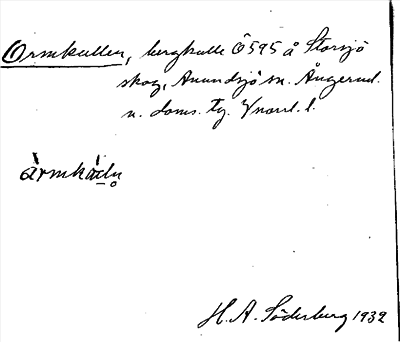 Ormkullen, bergkulle Ö 595 å Storsjö
skog, Anundsjö sn. Ångerml.
n. doms. tg. Vnorrl. l.
H. A. Söderberg 1932